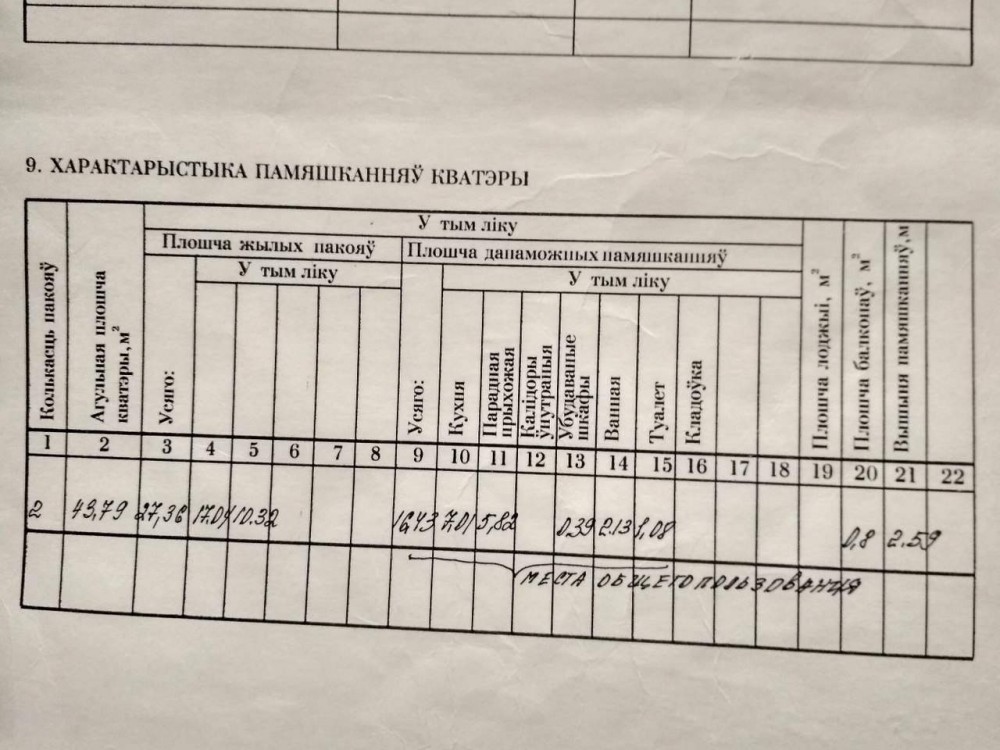 9. ХАРАКТАРЫСТЫКА ПАМЯШКАННЯЎ КВАТЭРЫ
У тым ліку
Плошча жылых пакояў
Плошча дапаможных памяшканняў
У тым ліку
У тым ліку
Колькасць пакояў
Агульная плошча кватэры, м²
Усяго:
Усяго:
Кухня
Парадная прыхожая
Калідоры ўнутраныя
Убудаваныe шкафы
Ванная
Туалет
Кладоўка
Плошча лоджыі, м²
Плошча балконаў, м²
Вышыня памяшканняў, м
1 2 3 4 5 6 7 8 9 10 11 12 13 14 15 16 17 18 19 20 21 22
2 43,79 27,36 17.04 10.32 16,43 7.01 5,82 0.39 2.13 1,08 0,8 2.59
МЕСТА ОБЩЕГО ПОЛЬЗОВАНИЯ